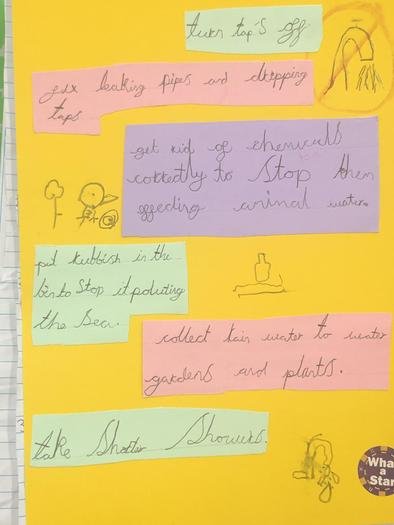 turn tap's off
fix leaking pipes and dripping
taps
get rid of chemicals
correctly to Stop them
effecting animal water.
put rubbish in the
bin to Stop it poluting
the Sea.
collect rain water to water
gardens and plants.
take Shorter Showers.
What
a
Star